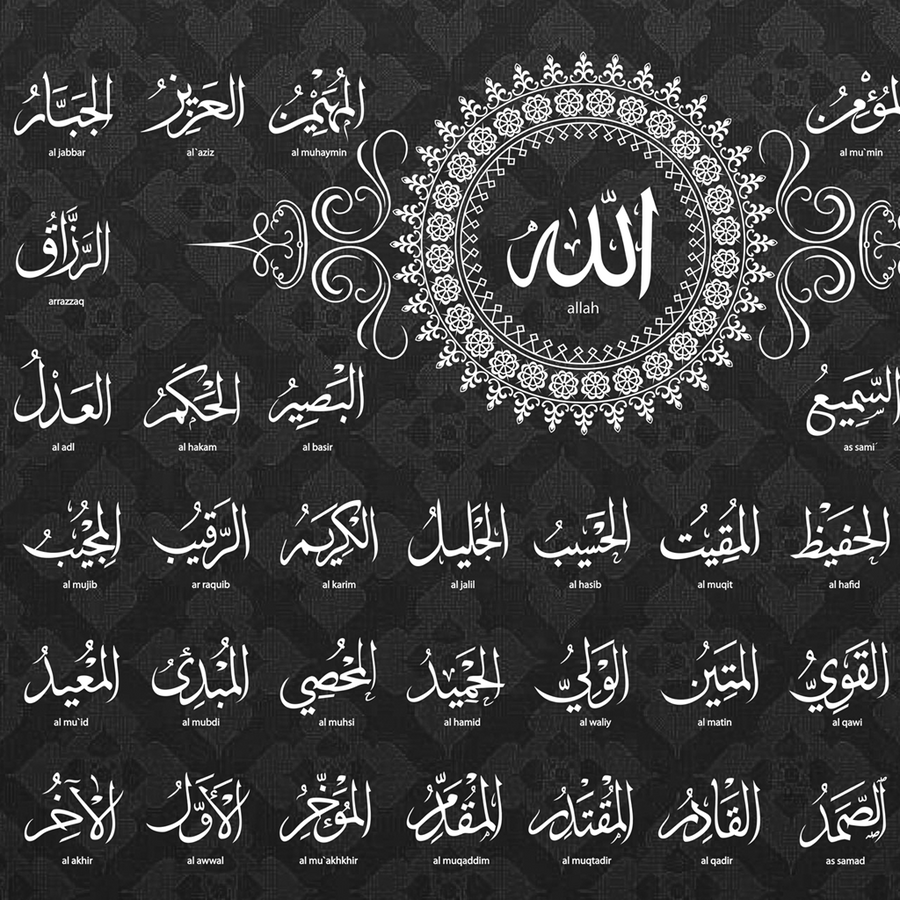 المُؤْمِنُ
المُهَيْمِنُ
العَزِيزُ
الجَبَّارُ
al mu`min
al muhaymin
al`aziz
al jabbar
الله
allah
الرَّزَّاقُ
arrazzaq
السَّمِيعُ
البَصِيرُ
الحَكَمُ
العَدْلُ
as sami´
al basir
al hakam
al adl
الحَفِيظُ
المُقِيتُ
الحَسِيبُ
الجَلِيلُ
الكَرِيمُ
الرَّقِيبُ
المُجِيبُ
al hafid
al muqit
al hasib
al jalil
al karim
ar raquib
al mujib
القَوِيُّ
المَتِينُ
الوَلِيُّ
الحَمِيدُ
المُحْصِي
المُبْدِئُ
المُعِيدُ
al qawi
al matin
al waliy
al hamid
al muhsi
al mubdi
al mu`id
الصَّمَدُ
القَادِرُ
المُقْتَدِرُ
المُقَدِّمُ
المُؤَخِّرُ
الأَوَّلُ
الآخِرُ
as samad
al qadir
al muqtadir
al muqaddim
al mu`akhkhir
al awwal
al akhir